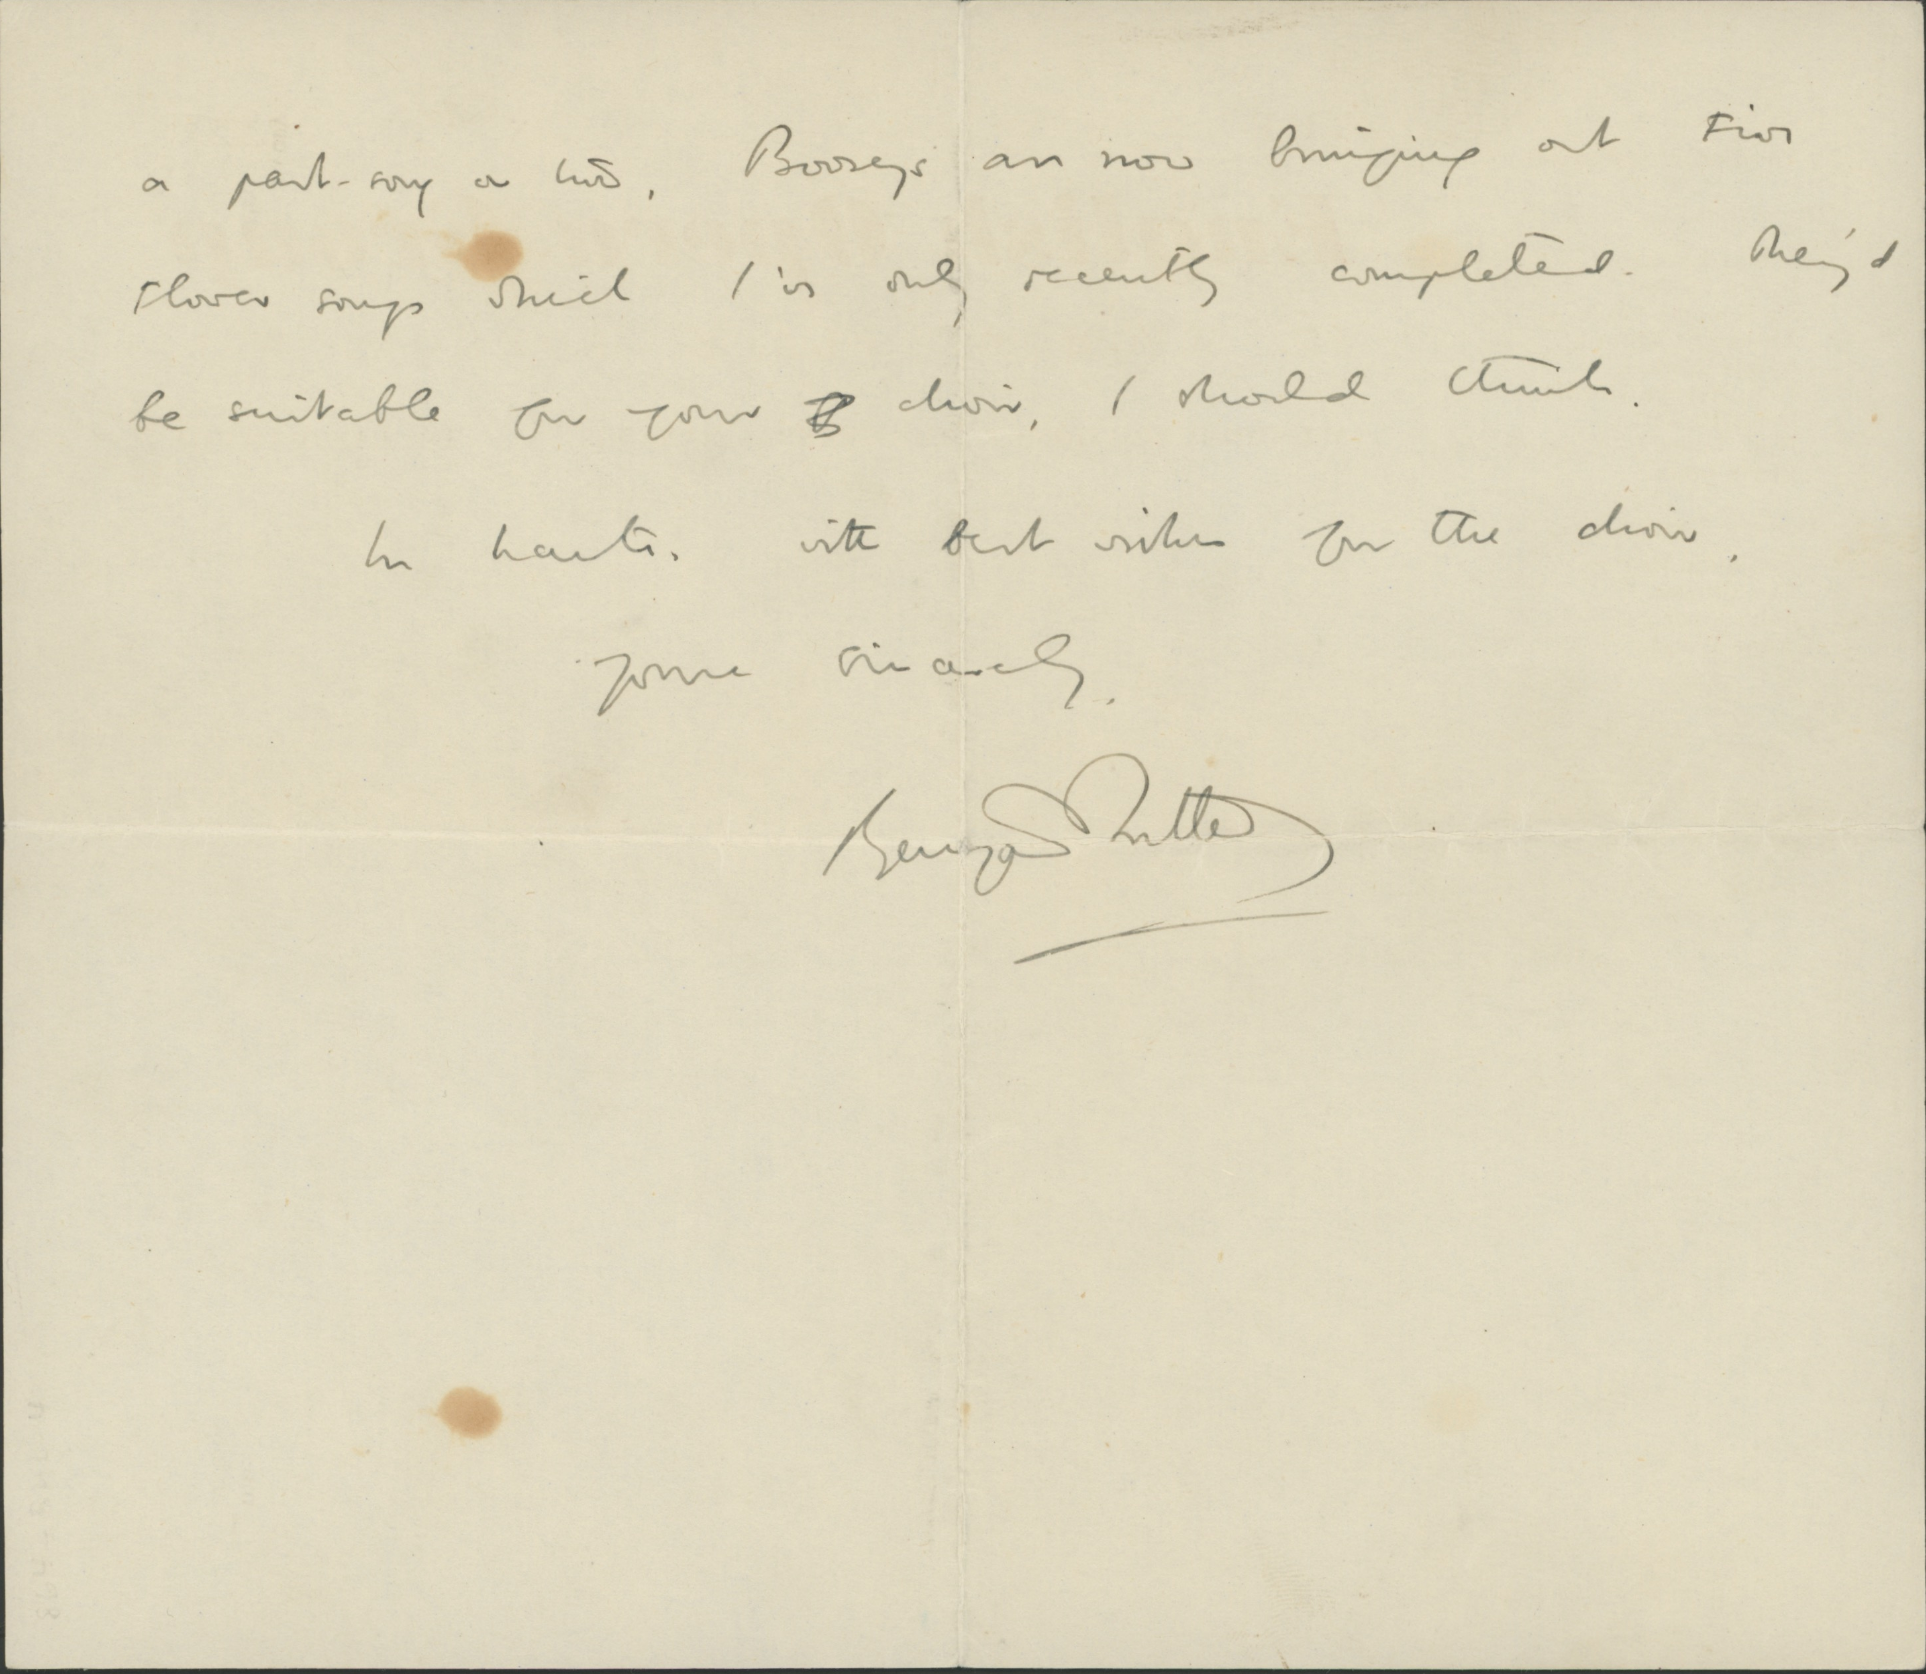 a part-song or two. Booseys are now bringing out Five
Flower songs which I've only recently completed. They'd
be suitable for your choir, I should think.
In haste. with best wishes for the choir.
Yours sincerely,
Benjamin Britten